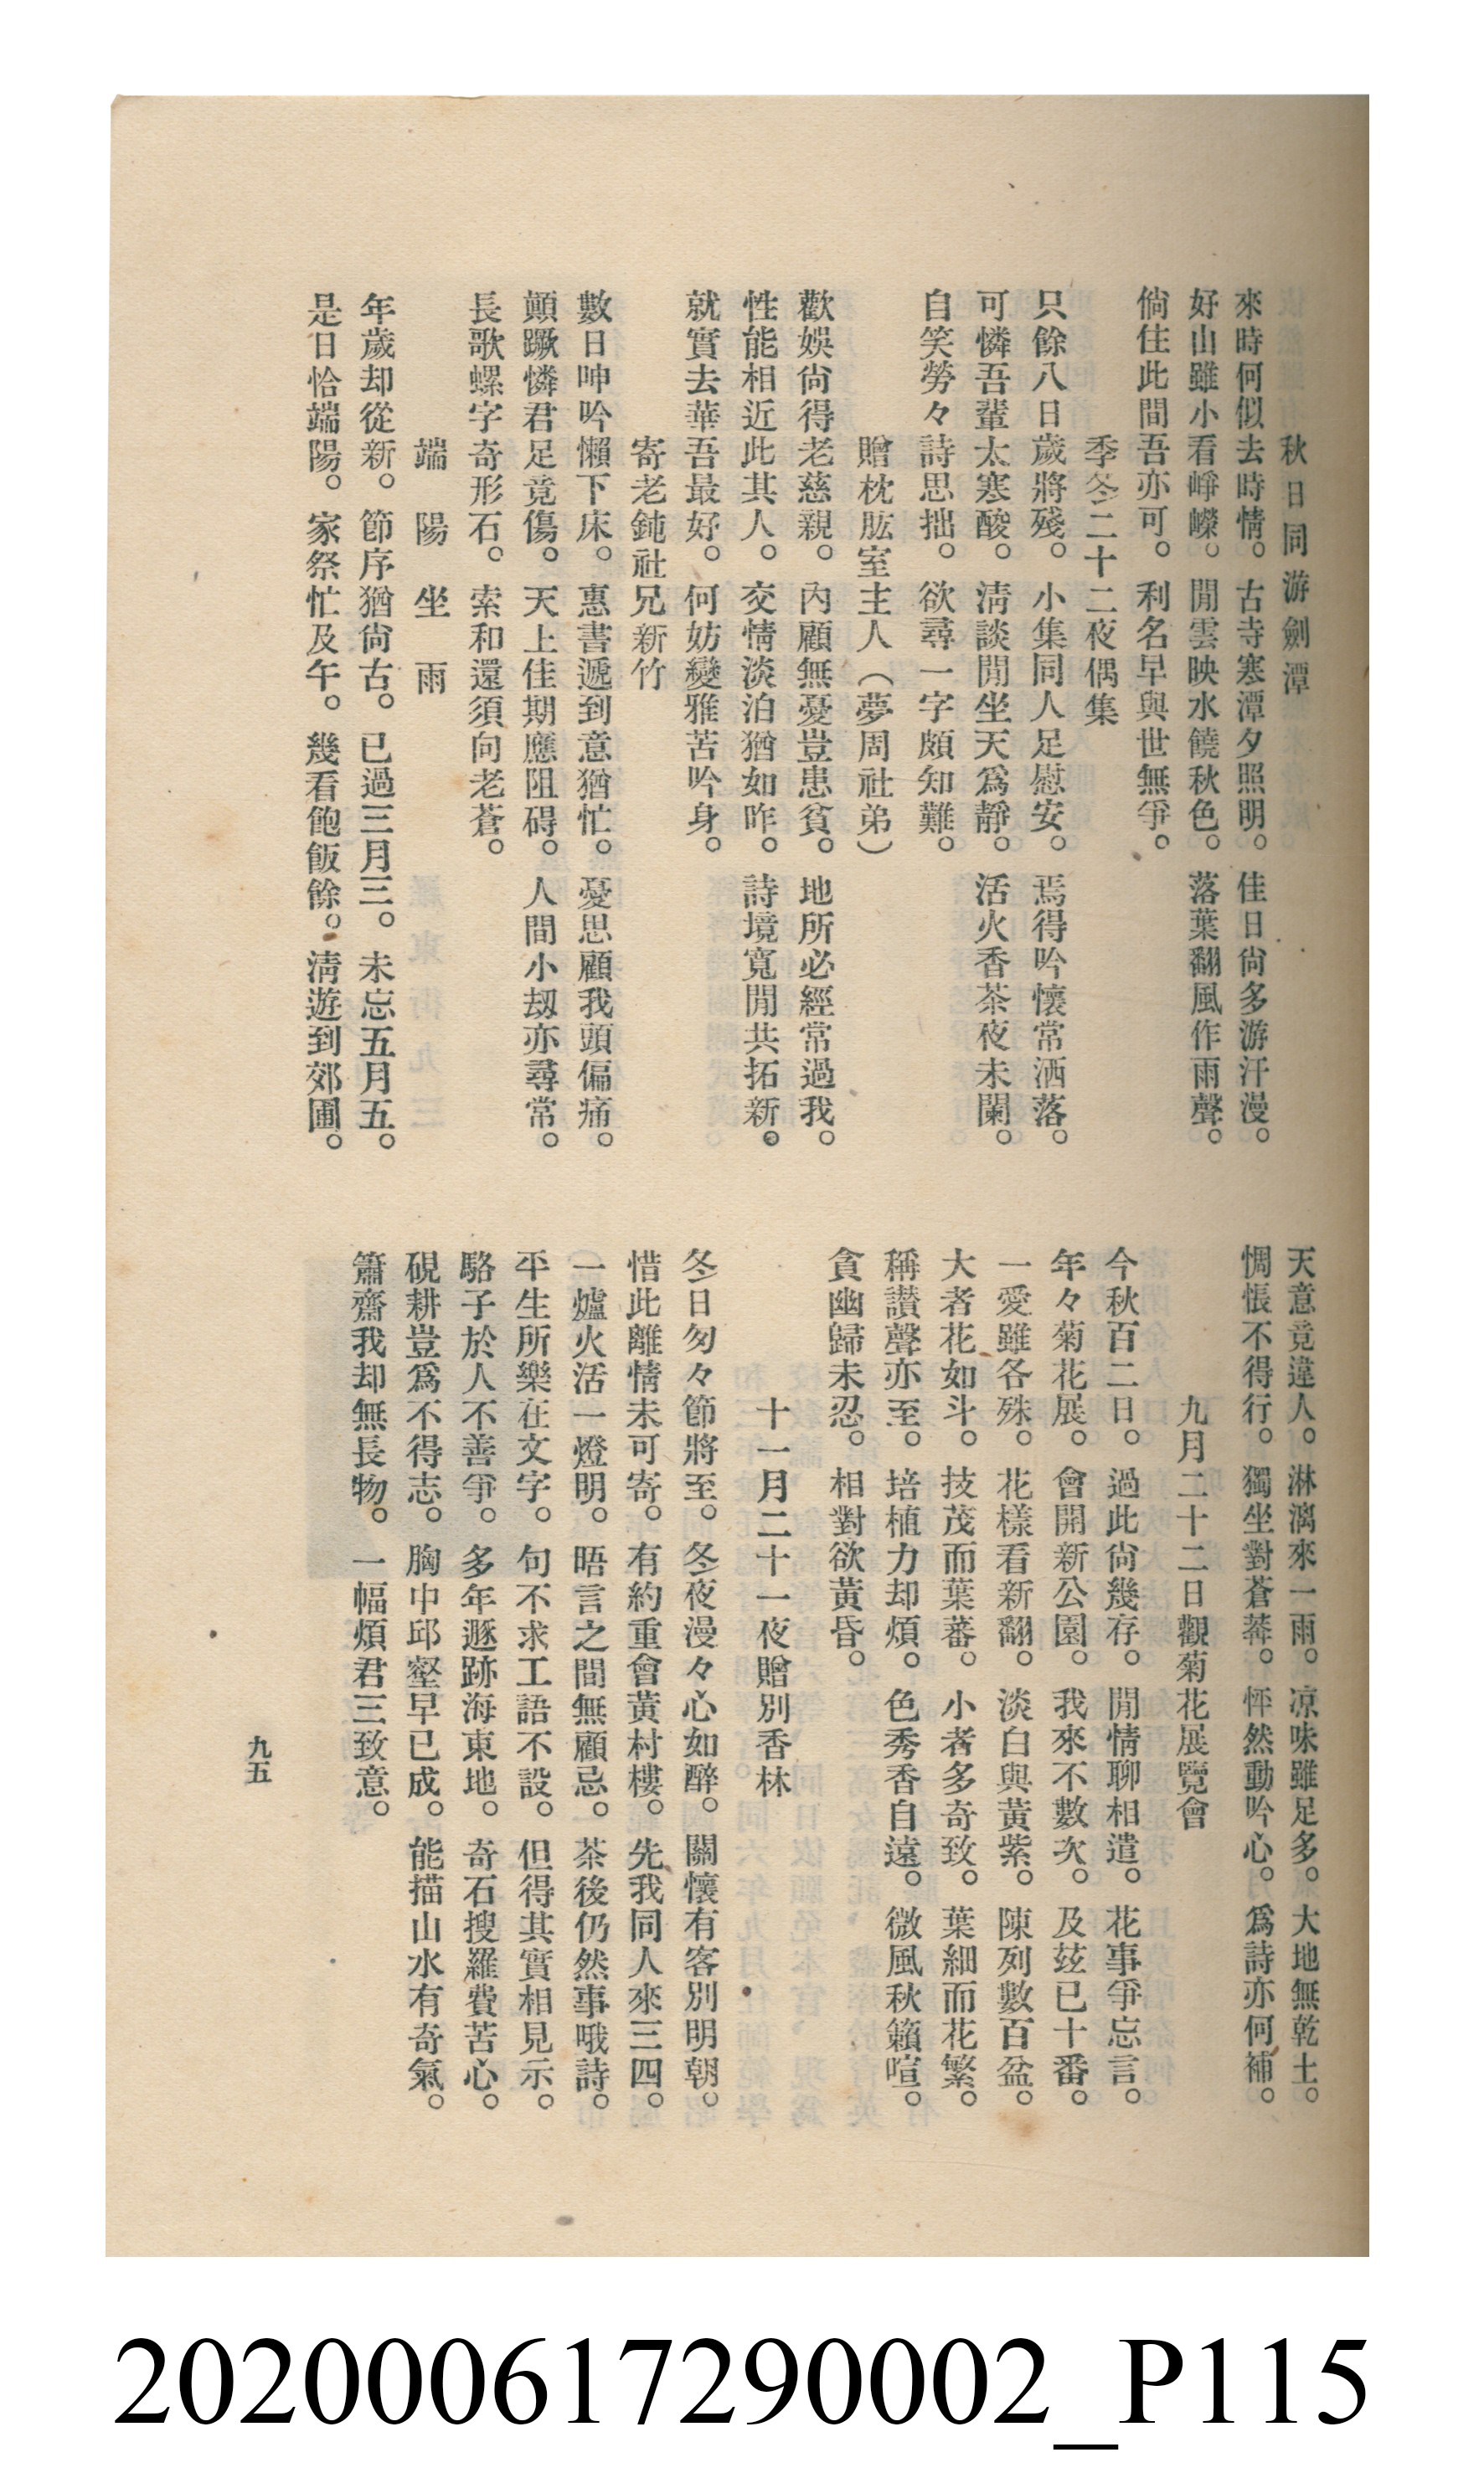 秋日同游劍潭
來時何似去時情。古寺寒潭夕照明。佳日尙多游汗漫。
好山雖小看崢嶸。閒雲映水饒秋色。落葉翻風作雨聲。
倘住此間吾亦可。利名早與世無爭。
季冬二十二夜偶集
只餘八日歲將殘。小集同人足慰安。焉得吟懷常洒落。
可憐吾輩太寒酸。淸談閒坐天爲靜。活火香茶夜未闌。
自笑勞々詩思拙。欲尋一字頗知難。
贈枕肱室主人（夢周社弟）
歡娛尙得老慈親。內顧無憂豈患貧。地所必經常過我。
性能相近此其人。交情淡泊猶如昨。詩境寬閒共拓新。
就實去華吾最好。何妨變雅苦吟身。
寄老鈍社兄新竹
數日呻吟懶下床。惠書遞到意猶忙。憂思顧我頭偏痛。
顚蹶憐君足竟傷。天上佳期應阻碍。人間小刼亦尋常。
長歌螺字奇形石。索和還須向老蒼。
端陽坐雨
年歲却從新。節序猶尙古。已過三月三。未忘五月五。
是日恰端陽。家祭忙及午。幾看飽飯餘。淸遊到郊圃。
天意竟違人。淋漓來一雨。凉味雖足多。大地無乾土。
惆悵不得行。獨坐對蒼莾。怦然動吟心。爲詩亦何補。
九月二十二日觀菊花展覽會
今秋百二日。過此尙幾存。閒情聊相遣。花事爭忘言。
年々菊花展。會開新公園。我來不數次。及玆已十番。
一愛雖各殊。花樣看新翻。淡白與黃紫。陳列數百盆。
大者花如斗。技茂而葉蕃。小者多奇致。葉細而花繁。
稱讃聲亦至。培植力却煩。色秀香自遠。微風秋籟喧。
貪幽歸未忍。相對欲黃昏。
十一月二十一夜贈別香林
冬日匆々節將至。冬夜漫々心如醉。關懷有客別明朝。
惜此離情未可寄。有約重會黃村樓。先我同人來三四。
一爐火活一燈明。晤言之間無顧忌。茶後仍然事哦詩。
平生所樂在文字。句不求工語不設。但得其實相見示。
駱子於人不善爭。多年遯跡海東地。奇石搜羅費苦心。
硯耕豈爲不得志。胸中邱壑早已成。能描山水有奇氣。
簫齋我却無長物。一幅煩君三致意。
九五
202000617290002_P115